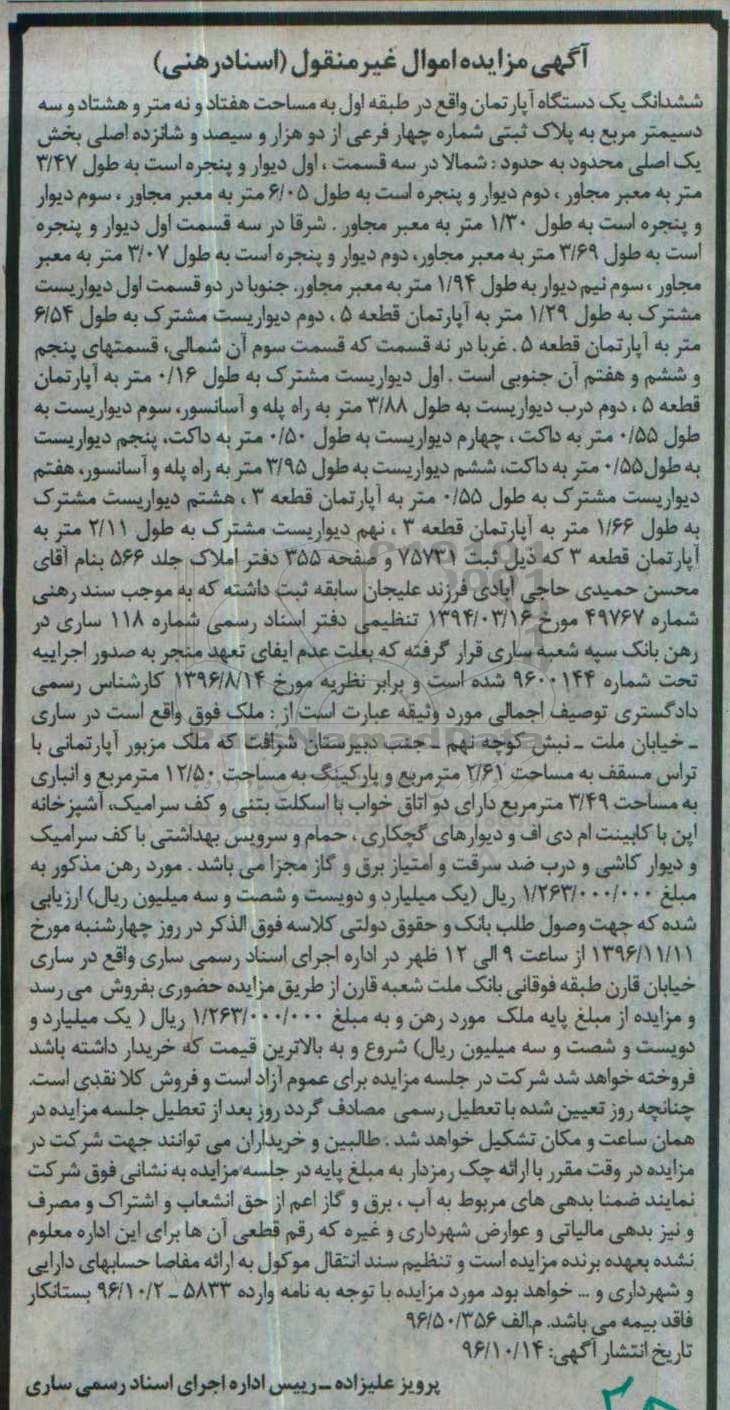 آگهی مزایده اموال غیرمنقول (اسناد رهنی)
ششدانگ یک دستگاه آپارتمان واقع در طبقه اول به مساحت هفتاد و نه متر و هشتاد و سه
دسیمتر مربع به پلاک ثبتی شماره چهار فرعی از دو هزار و سیصد و شانزده اصلی بخش
یک اصلی محدود به حدود : شمالا در سه قسمت ، اول دیوار و پنجره است به طول ۳/۴۷
متر به معبر مجاور ، دوم دیوار و پنجره است به طول ۶/۰۵ متر به معبر مجاور ، سوم دیوار
و پنجره است به طول ۱/۳۰ متر به معبر مجاور . شرقا در سه قسمت اول دیوار و پنجره
است به طول ۳/۶۹ متر به معبر مجاور، دوم دیوار و پنجره است به طول ۳/۰۷ متر به معبر
مجاور ، سوم نیم دیوار به طول ۱/۹۴ متر به معبر مجاور. جنوبا در دو قسمت اول دیواریست
مشترک به طول ۱/۲۹ متر به آپارتمان قطعه ۵ ، دوم دیواریست مشترک به طول ۶/۵۴
متر به آپارتمان قطعه ۵ . غربا در نه قسمت که قسمت سوم آن شمالی، قسمتهای پنجم
و ششم و هفتم آن جنوبی است . اول دیواریست مشترک به طول ۰/۱۶ متر به آپارتمان
قطعه ۵ ، دوم درب دیواریست به طول ۳/۸۸ متر به راه پله و آسانسور، سوم دیواریست به
طول ۰/۵۵ متر به داکت ، چهارم دیواریست به طول ۰/۵۰ متر به داکت، پنجم دیواریست
به طول۰/۵۵ متر به داکت، ششم دیواریست به طول ۳/۹۵ متر به راه پله و آسانسور، هفتم
دیواریست مشترک به طول ۰/۵۵ متر به آپارتمان قطعه ۳ ، هشتم دیواریست مشترک
به طول ۱/۶۶ متر به آپارتمان قطعه ۳ ، نهم دیواریست مشترک به طول ۲/۱۱ متر به
آپارتمان قطعه ۳ که ذیل ثبت ۷۵۷۳۱ و صفحه ۳۵۵ دفتر املاک جلد ۵۶۶ بنام آقای
محسن حمیدی حاجی آبادی فرزند علیجان سابقه ثبت داشته که به موجب سند رهنی
شماره ۴۹۷۶۷ مورخ ۱۳۹۴/۰۳/۱۶ تنظیمی دفتر اسناد رسمی شماره ۱۱۸ ساری در
رهن بانک سپه شعبه ساری قرار گرفته که بعلت عدم ایفای تعهد منجر به صدور اجراییه
تحت شماره ۹۶۰۰۱۴۴ شده است و برابر نظریه مورخ ۱۳۹۶/۸/۱۴ کارشناس رسمی
دادگستری توصیف اجمالی مورد وثیقه عبارت است از : ملک فوق واقع است در ساری
ـ خیابان ملت ـ نبش کوچه نهم ـ جنب دبیرستان شرافت که ملک مزبور آپارتمانی با
تراس مسقف به مساحت ۲/۶۱ مترمربع و پارکینگ به مساحت ۱۲/۵۰ مترمربع و انباری
به مساحت ۳/۴۹ مترمربع دارای دو اتاق خواب با اسکلت بتنی و کف سرامیک، آشپزخانه
اپن با کابینت ام دی اف و دیوارهای گچکاری ، حمام و سرویس بهداشتی با کف سرامیک
و دیوار کاشی و درب ضد سرقت و امتیاز برق و گاز مجزا می باشد . مورد رهن مذکور به
مبلغ ۱/۲۶۳/۰۰۰/۰۰۰ ریال (یک میلیارد و دویست و شصت و سه میلیون ریال) ارزیابی
شده که جهت وصول طلب بانک و حقوق دولتی کلاسه فوق الذکر در روز چهارشنبه مورخ
۱۳۹۶/۱۱/۱۱ از ساعت ۹ الی ۱۲ ظهر در اداره اجرای اسناد رسمی ساری واقع در ساری
خیابان قارن طبقه فوقانی بانک ملت شعبه قارن از طریق مزایده حضوری بفروش می رسد
و مزایده از مبلغ پایه ملک مورد رهن و به مبلغ ۱/۲۶۳/۰۰۰/۰۰۰ ریال ( یک میلیارد و
دویست و شصت و سه میلیون ریال) شروع و به بالاترین قیمت که خریدار داشته باشد
فروخته خواهد شد شرکت در جلسه مزایده برای عموم آزاد است و فروش کلا نقدی است.
چنانچه روز تعیین شده با تعطیل رسمی مصادف گردد روز بعد از تعطیل جلسه مزایده در
همان ساعت و مکان تشکیل خواهد شد . طالبین و خریداران می توانند جهت شرکت در
مزایده در وقت مقرر با ارائه چک رمزدار به مبلغ پایه در جلسه مزایده به نشانی فوق شرکت
نمایند ضمنا بدهی های مربوط به آب ، برق و گاز اعم از حق انشعاب و اشتراک و مصرف
و نیز بدهی مالیاتی و عوارض شهرداری و غیره که رقم قطعی آن ها برای این اداره معلوم
نشده بعهده برنده مزایده است و تنظیم سند انتقال موکول به ارائه مفاصا حسابهای دارایی
و شهرداری و ... خواهد بود. مورد مزایده با توجه به نامه وارده ۵۸۳۳ ـ ۹۶/۱۰/۲ بستانکار
فاقد بیمه می باشد. م.الف ۹۶/۵۰/۳۵۶
تاریخ انتشار آگهی: ۹۶/۱۰/۱۴
پرویز علیزاده ـ رییس اداره اجرای اسناد رسمی ساری